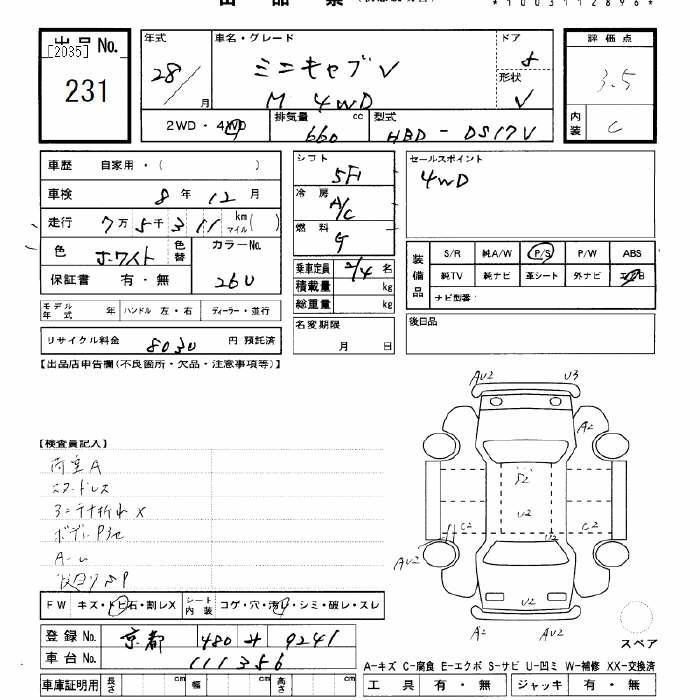 *1003112896*
出品No.
[2035]
231
年式
28/
月
車名・グレード
ミニキャブV
M 4WD
ドア
形状
V
評価点
3.5
内装
C
2WD・4WD
排気量 cc
660
型式
HBD-DS17V
車歴 自家用・( )
車検 8年 12月
走行 7万 5千 311 km マイル( )
色 ホワイト 色替
カラーNo.
26U
保証書 有・無
モデル年式 年 ハンドル 左・右 ディーラー・並行
リサイクル料金 8030 円 預託済
シフト
5F
冷房
A/C
燃料
G
乗車定員 2/4 名
積載量 kg
総重量 kg
名変期限
月 日
セールスポイント
4WD
装備品
S/R 純A/W P/S P/W ABS
純TV 純ナビ 革シート 外ナビ エアB
ナビ型番:
後日品
【出品店申告欄(不良箇所・欠品・注意事項等)】
【検査員記入】
荷室A
アンテナ折れX
FW キズ・トビ石・割レX
シート内装 コゲ・穴・汚レ・シミ・破レ・スレ
登録No. 京都 480 サ 9241
車台No. 111356
車庫証明用 長さ cm 幅 cm 高さ cm
AU2
U3
A2
S2
U2
C2
C2
U2
AU2
U2
U2
A2
AU2
スペア
A-キズ C-腐食 E-エクボ S-サビ U-凹ミ W-補修 XX-交換済
工具 有・無 ジャッキ 有・無